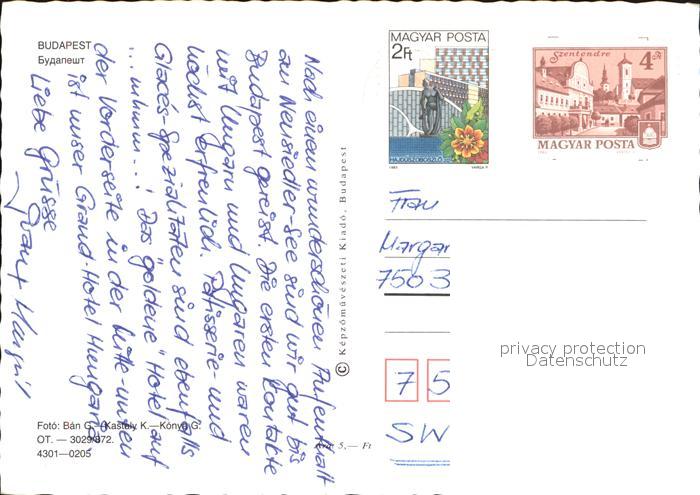 BUDAPEST
Будапешт
Nach einem wunderschönen Aufenthalt
am Neusiedler-See sind wir gut bis
Budapest gereist. Die ersten Kontakte
mit Ungarn und Ungaren waren
höchst erfreulich. Patisserie- und
Glacés-Spezialitäten sind ebenfalls
... mhmm...! Das "goldene" Hotel auf
der Vorderseite in der Mitte-unten
ist unser Grand-Hotel Hungaria.
Liebe Grüsse
Fotó: Bán G.—Kastaly K.—Kónya G.
OT. — 3029/872.
4301—0205
Ára: 5,— Ft
© Képzőművészeti Kiadó, Budapest
MAGYAR POSTA
2Ft
HAJDÚSZOBOSZLÓ
1983 VARGA P.
Szentendre
4 Ft
MAGYAR POSTA
Frau
Margar
7503
75
SW
privacy protection
Datenschutz